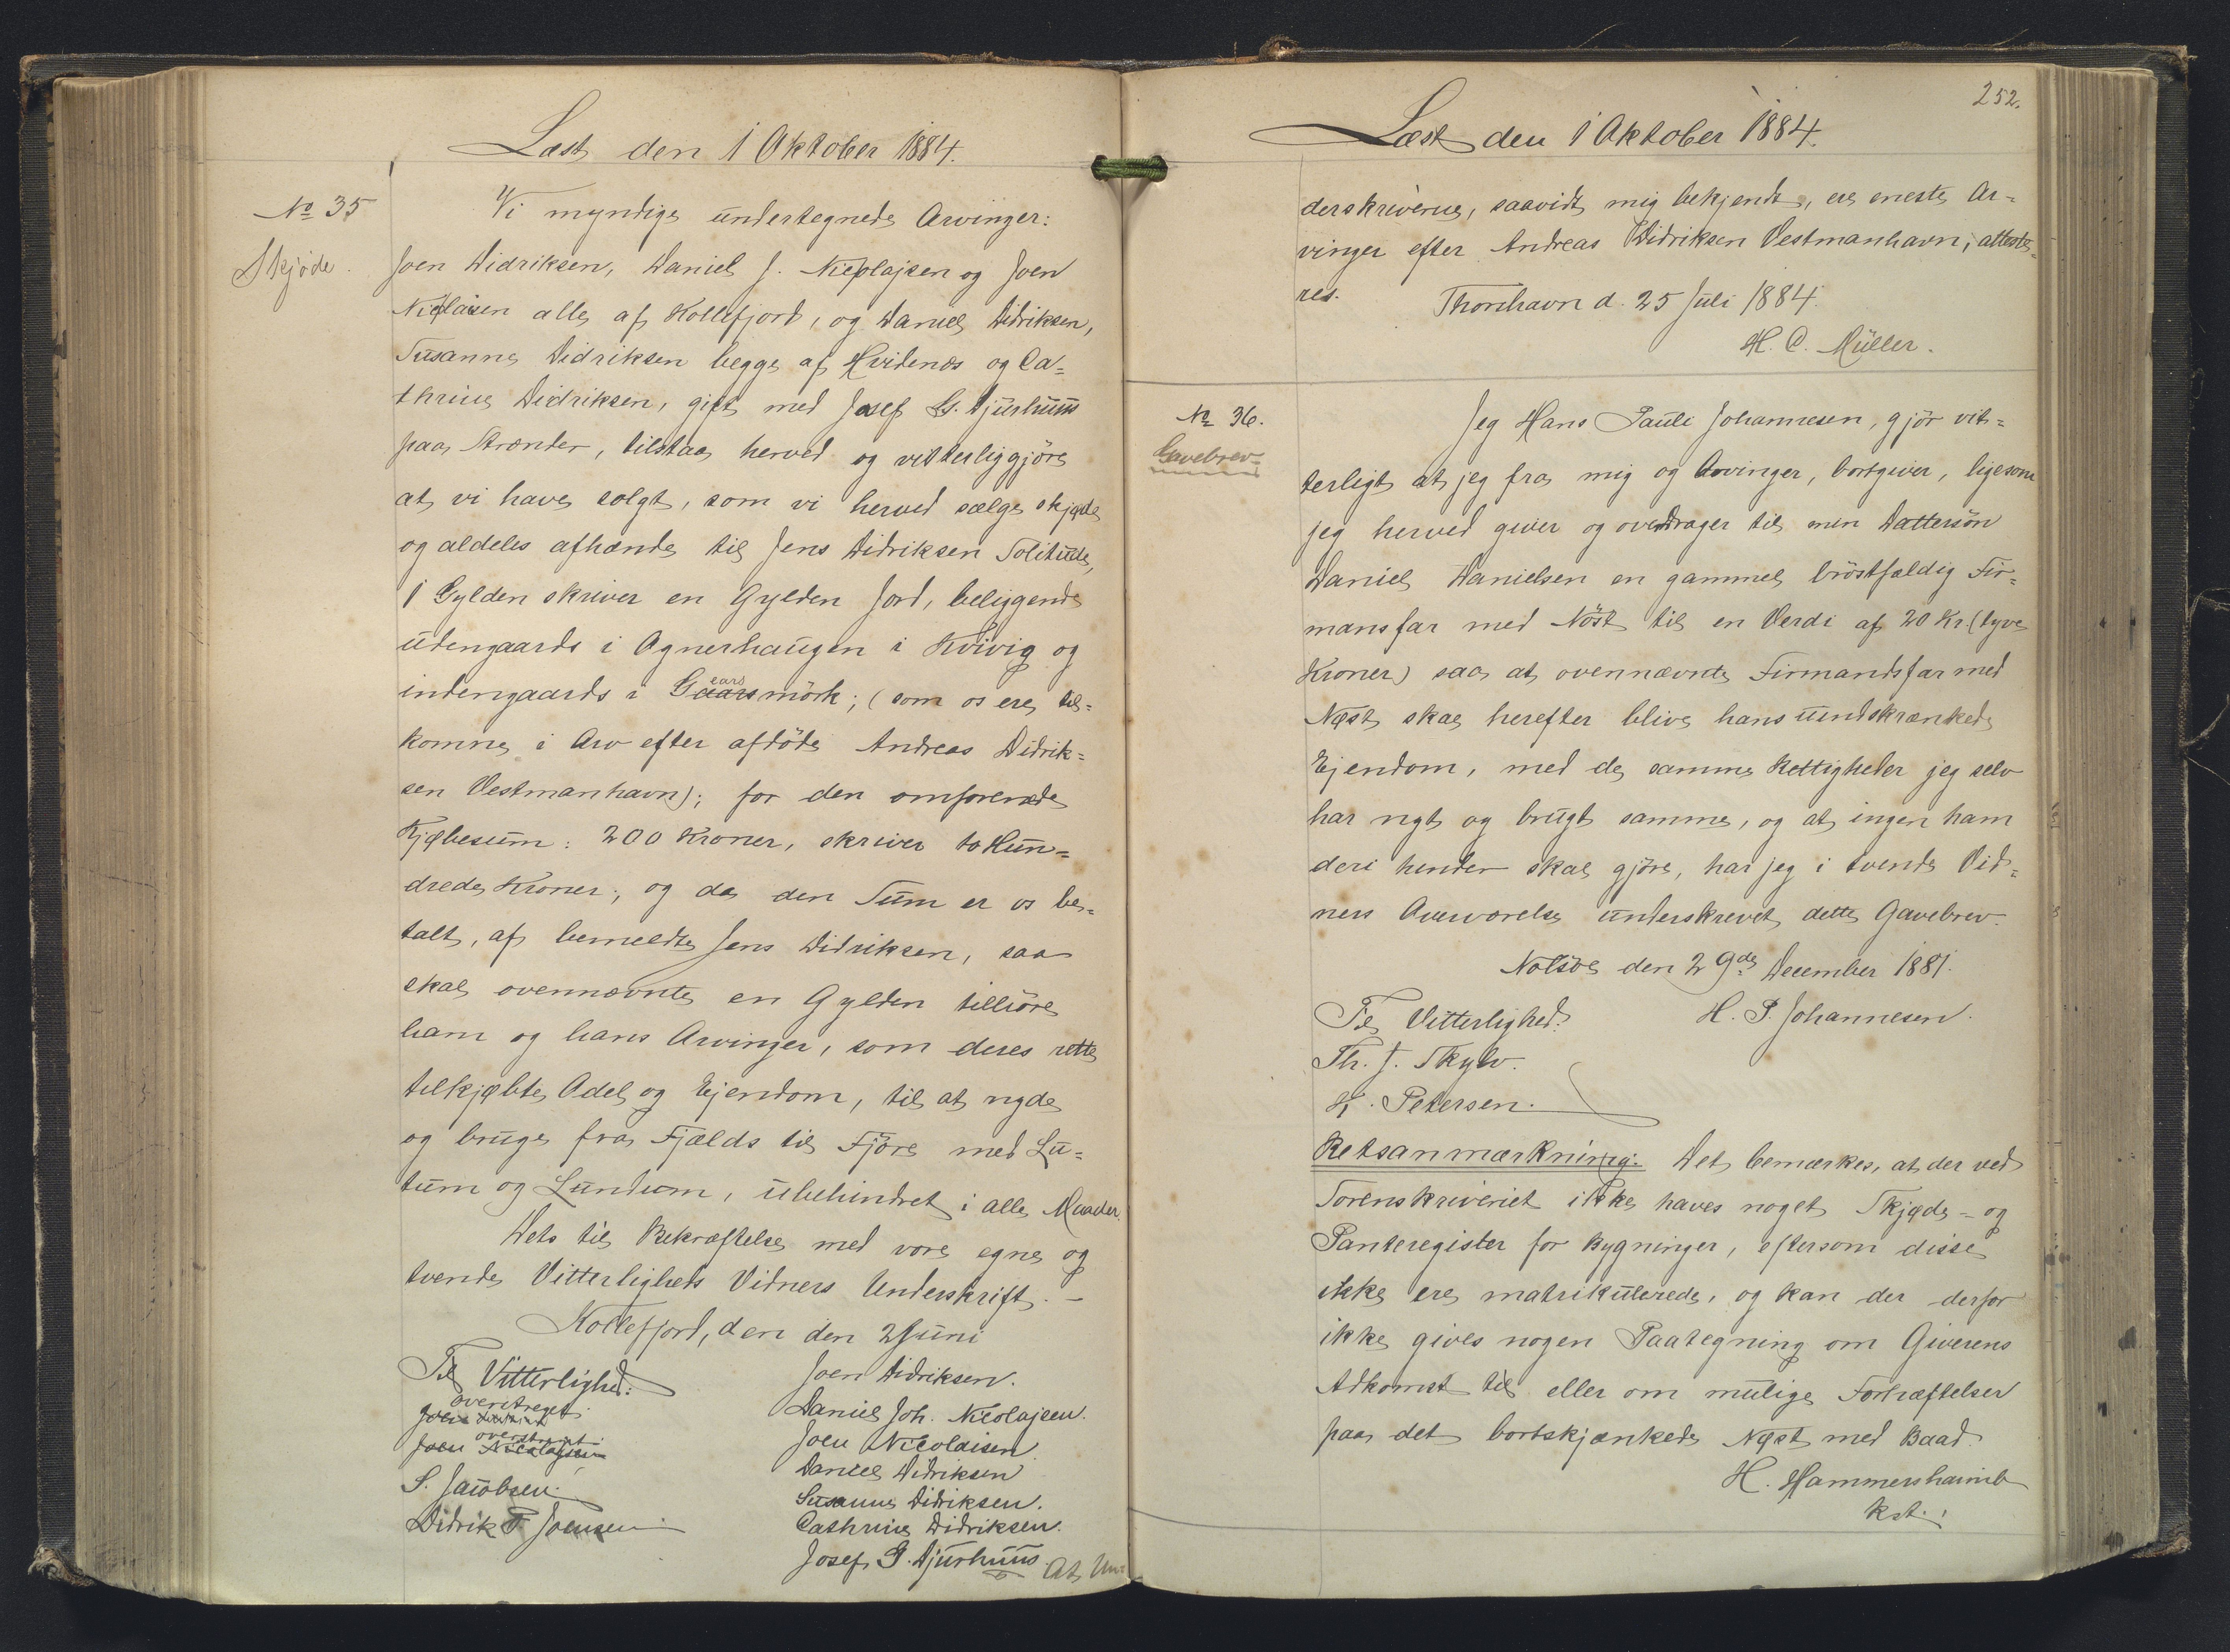 Læst den 1 Oktober 1884.
No 35
Skjöde.
Vi myndige undertegnede Arvinger:
Joen Didriksen, Daniel J. Nicolajsen og Joen
Nicolaisen alle af Kollefjord, og Daniel Didriksen,
Susanne Didriksen begge af Hvidenæs og Ca=
thrine Didriksen, gift med Josef G. Djurhuus
paa Strænder, tilstaa herved og vitterliggjöre
at vi have solgt, som vi herved sælge skjøde
og aldeles afhænde til Jens Didriksen Solitude,
1 Gylden skriver en Gylden Jord, beliggende
udengaards i Ognerhaugen i Kvivig og
indengaards i Gaarsmörk; (som os ere til=
komne i Arv efter afdöde Andreas Didrik=
sen Vestmanhavn); for den omforenede
Kjøbesum: 200 Kroner, skriver to Hun=
drede Kroner; og da den Sum er os be=
talt, af bemeldte Jens Didriksen, saa
skal ovennævnte en Gylden tilhöre
ham og hans Arvinger, som deres rette
tilkjøbte Odel og Ejendom, til at nyde
og bruge fra Fjælds til Fjöre med Lu=
tum og Lundum, ubehindret i alle Maader.
Dets til Bekræftelse med vore egne og
tvende Vitterligheds Vidners Underskrift. -
Kollefjord, den den 2 Juni
Til Vitterlighed:
overstreget
overstreget
Joen Nicolajsen
S. Jacobsen.
Didrik P. Joensen
Joen Didriksen.
Daniel Joh. Nicolajsen.
Joen Nicolaisen
Daniel Didriksen
Susanne Didriksen.
Cathrine Didriksen.
Josef G. Djurhuus.
At Un=
252.
Læst den 1 Oktober 1884.
derskriverne, saavidt mig bekjendt, ere eneste Ar=
vinger efter Andreas Didriksen Vestmanhavn, atteste=
res.
Thorshavn d. 25 Juli 1884.
H. C. Müller.
No 36.
Gavebrev
Jeg Hans Pauli Johannesen, gjör vit=
terligt at jeg fra mig og Arvinger, bortgiver, ligesom
jeg herved giver og overdrager til min Dattersön
Daniel Danielsen en gammel bröstfældig Fir=
mansfar med Nöst til en Verdi af 20 Kr. (tyve
Kroner) saa at ovennævnte Firmandsfar med
Nøst skal herefter blive hans uindskrænkede
Ejendom, med de samme Rettigheder jeg selv
har nydt og brugt samme, og at ingen ham
deri hinder skal gjöre, har jeg i tvende Vid=
ners Overværelse underskrevet dette Gavebrev.
Nolsöe den 29de December 1881.
Til Vitterlighed:
H. P. Johannesen.
Th. J. Skylv.
K. Petersen.
Retsanmærkning: Det bemærkes, at der ved
Sorenskriveriet ikke haves noget Skjøde- og
Panteregister for Bygninger, eftersom disse
ikke ere matrikulerede, og kan der derfor
ikke gives nogen Paategning om Giverens
Adkomst til eller om mulige Forhæftelser
paa det bortskjænkede Nøst med Baad.
H. Hammershaimb
kst.